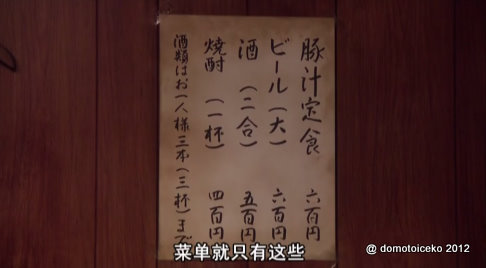 豚汁定食 六百円
ビール(大) 六百円
酒(二合) 五百円
焼酎(一杯) 四百円
酒類はお一人様三本(三杯)まで
菜单就只有这些
@ domotoiceko 2012